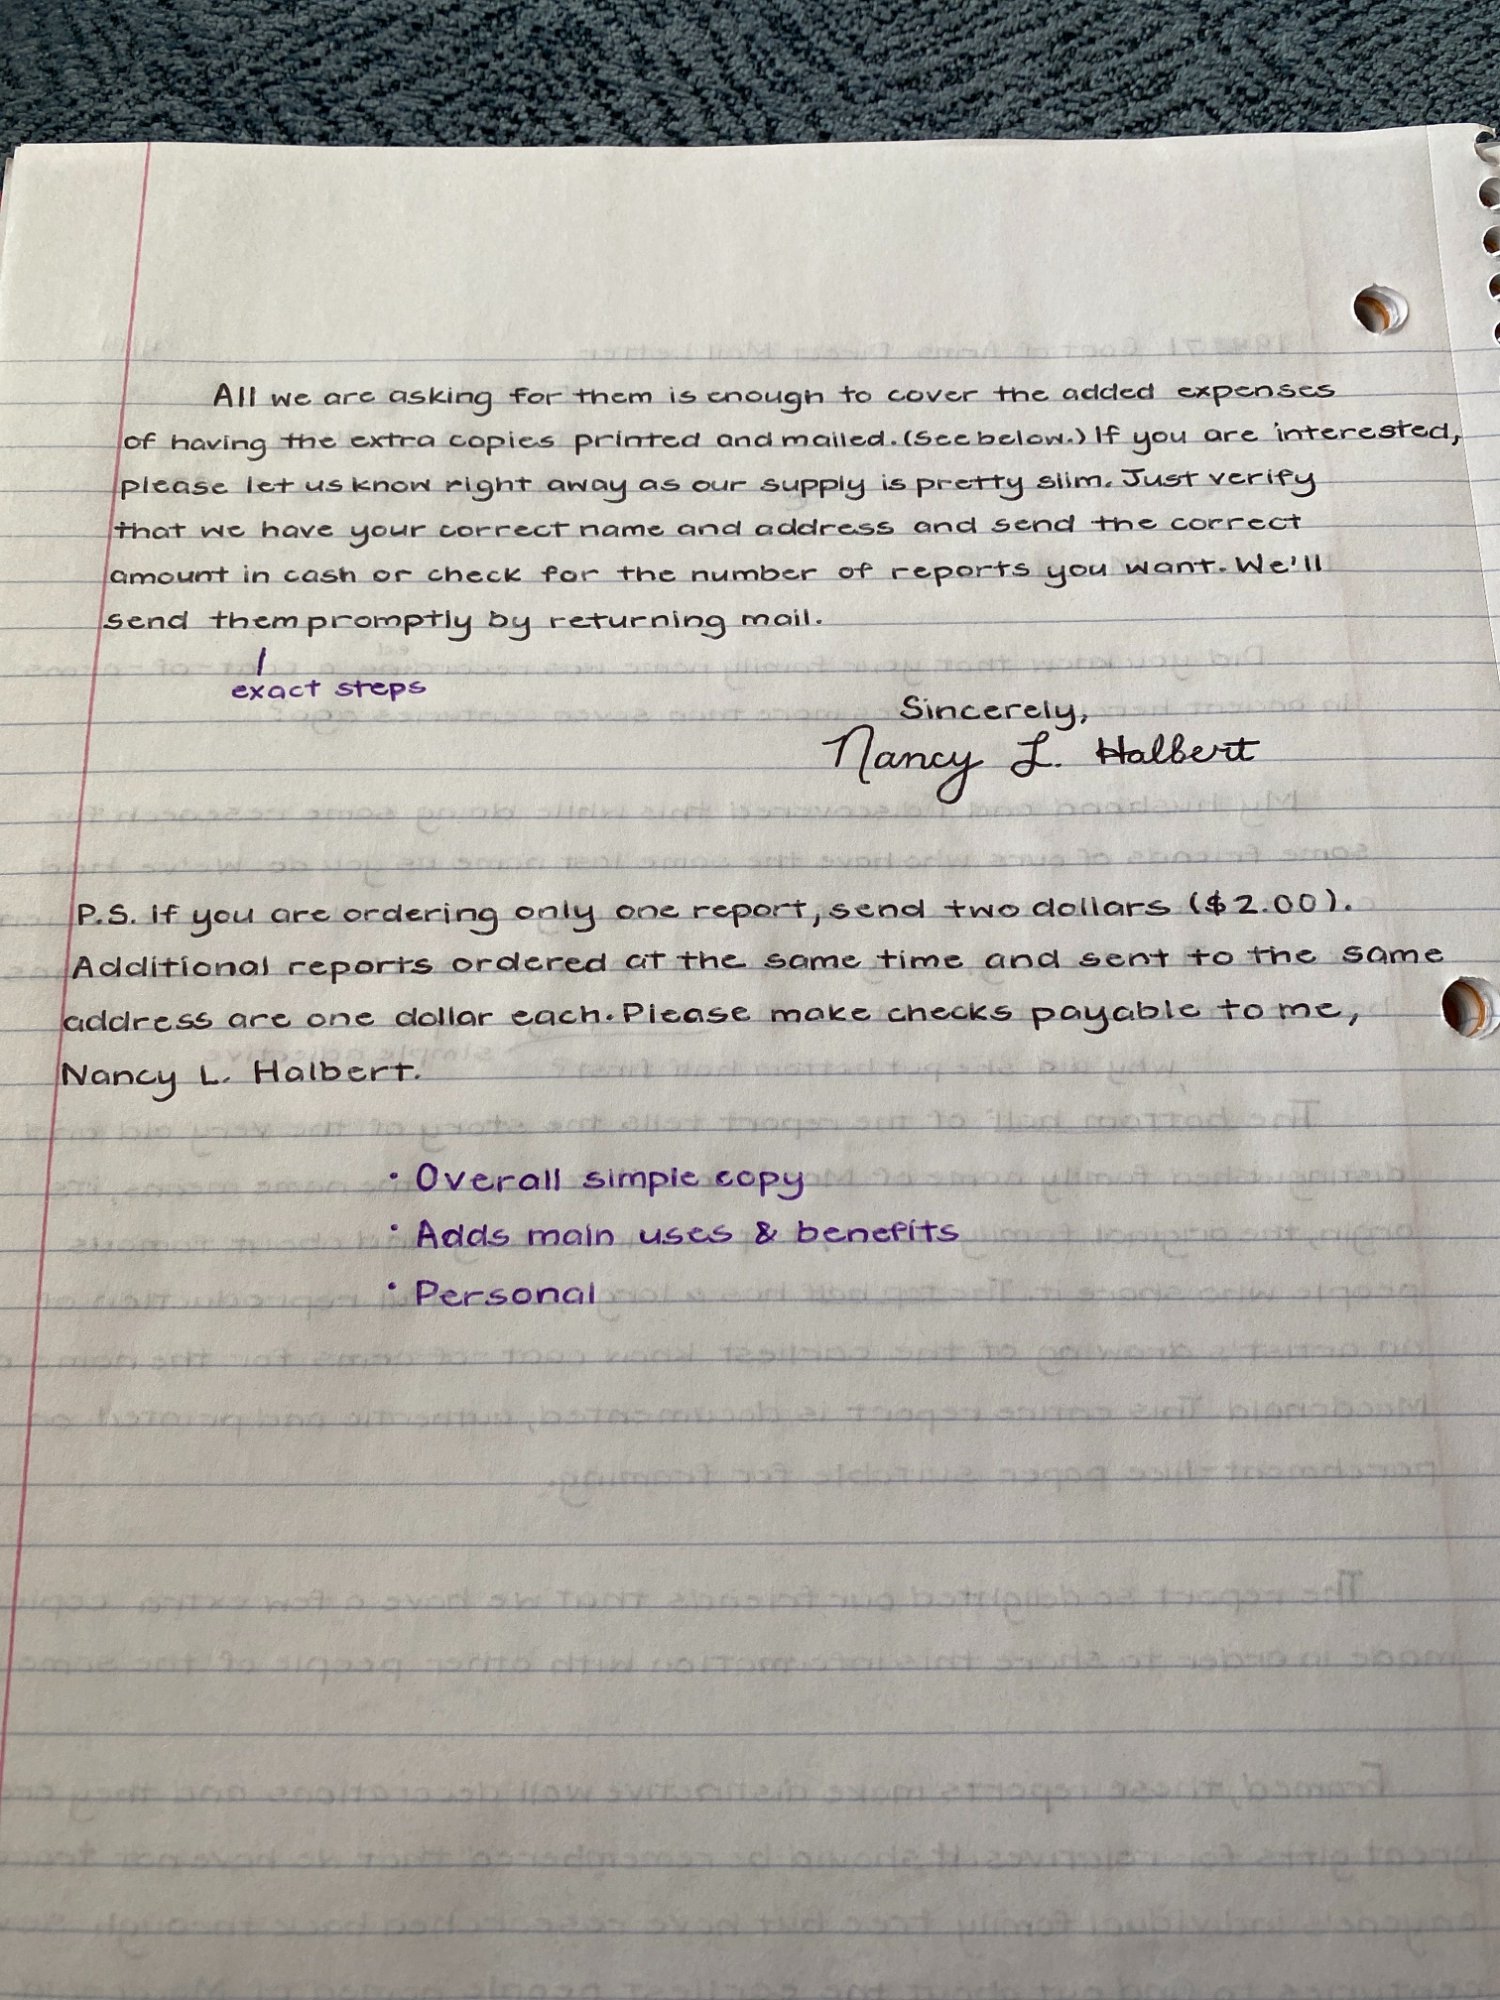 All we are asking for them is enough to cover the added expenses
of having the extra copies printed and mailed. (See below.) If you are interested,
please let us know right away as our supply is pretty slim. Just verify
that we have your correct name and address and send the correct
amount in cash or check for the number of reports you want. We'll
send them promptly by returning mail.
exact steps
Sincerely,
Nancy L. Halbert
P.S. If you are ordering only one report, send two dollars ($2.00).
Additional reports ordered at the same time and sent to the same
address are one dollar each. Please make checks payable to me,
Nancy L. Halbert.
• Overall simple copy
• Adds main uses & benefits
• Personal